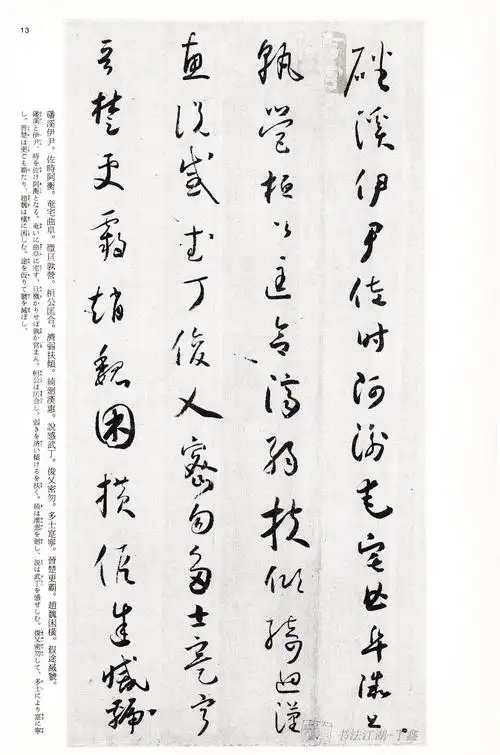 13
磻溪伊尹佐時阿衡奄宅曲阜微旦
孰營桓公匡合濟弱扶傾綺迴漢
惠說感武丁俊乂密勿多士寔寧
晉楚更霸趙魏困橫假途滅虢
磻溪伊尹。佐時阿衡。奄宅曲阜。微旦孰營。桓公匡合。濟弱扶傾。綺迴漢惠。說感武丁。俊乂密勿。多士寔寧。晉楚更霸。趙魏困橫。假途滅虢。
磻溪と伊尹、時を佐け阿衡となる。奄いに曲阜に宅す、旦微かりせば孰か営まん。桓公は匡合し、弱きを済い傾けるを扶く。綺は漢恵を廻し、説は武丁を感ぜしむ。俊乂密勿して、多士により寔に寧
し。晋楚は更ごも覇たり、趙魏は横に困しむ。途を仮りて虢を滅ぼし、
书法江湖-丁鑫